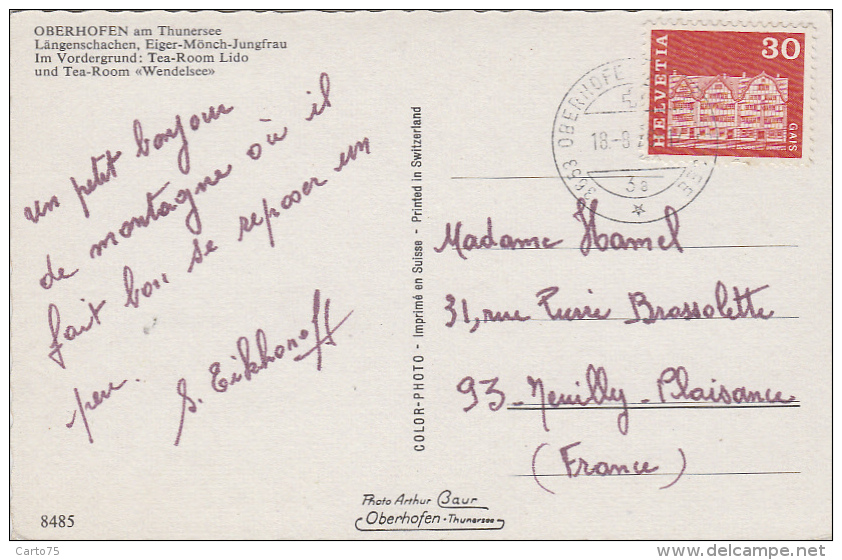 OBERHOFEN am Thunersee
Längenschachen, Eiger-Mönch-Jungfrau
Im Vordergrund: Tea-Room Lido
und Tea-Room «Wendelsee»
un petit bonjour
de montagne où il
fait bon se reposer un
peu.
S. Eikhonoff
8485
COLOR-PHOTO - Imprimé en Suisse - Printed in Switzerland
Photo Arthur Baur
Oberhofen-Thunersee
HELVETIA
30
GAIS
3653 OBERHOFE
18.-8
3a
Madame Hamel
31, rue Pierre Brossolette
93-Neuilly-Plaisance
(France)
Carto75
www.delcampe.net